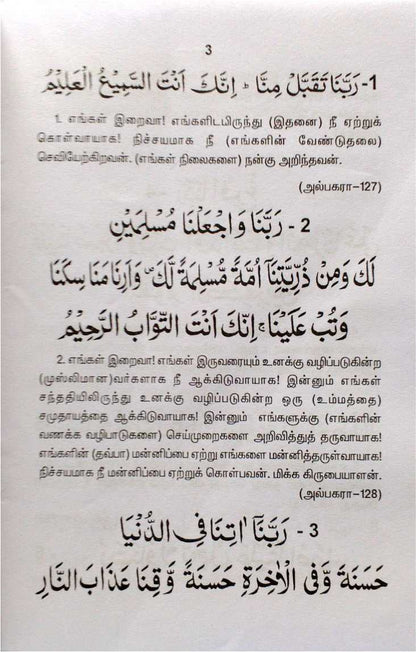 3
1- رَبَّنَا تَقَبَّلْ مِنَّا ؕ اِنَّكَ اَنْتَ السَّمِيْعُ الْعَلِيْمُ
1. எங்கள் இறைவா! எங்களிடமிருந்து (இதனை) நீ ஏற்றுக்
கொள்வாயாக! நிச்சயமாக நீ (எங்களின் வேண்டுதலை)
செவியேற்கிறவன். (எங்கள் நிலைகளை) நன்கு அறிந்தவன்.
(அல்பகரா-127)
2 - رَبَّنَا وَاجْعَلْنَا مُسْلِمَيْنِ
لَكَ وَمِنْ ذُرِّيَّتِنَآ اُمَّةً مُّسْلِمَةً لَّكَ ۪ وَاَرِنَا مَنَاسِكَنَا
وَتُبْ عَلَيْنَا ۚ اِنَّكَ اَنْتَ التَّوَّابُ الرَّحِيْمُ
2. எங்கள் இறைவா! எங்கள் இருவரையும் உனக்கு வழிப்படுகின்ற
(முஸ்லிமான)வர்களாக நீ ஆக்கிடுவாயாக! இன்னும் எங்கள்
சந்ததியிலிருந்து உனக்கு வழிப்படுகின்ற ஒரு (உம்மத்தை)
சமுதாயத்தை ஆக்கிடுவாயாக! இன்னும் எங்களுக்கு (எங்களின்
வணக்க வழிபாடுகளை) செய்முறைகளை அறிவித்துத் தருவாயாக!
எங்களின் (தவ்பா) மன்னிப்பை ஏற்று எங்களை மன்னித்தருள்வாயாக!
நிச்சயமாக நீ மன்னிப்பை ஏற்றுக் கொள்பவன். மிக்க கிருபையாளன்.
(அல்பகரா-128)
3 - رَبَّنَآ اٰتِنَا فِي الدُّنْيَا
حَسَنَةً وَّفِي الْاٰخِرَةِ حَسَنَةً وَّقِنَا عَذَابَ النَّارِ